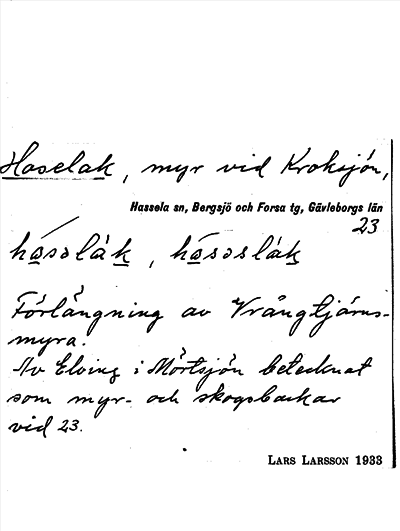 Haselak, myr vid Kroksjón,
Hassela sn, Bergsjö och Forsa tg, Gävleborgs län
23
hasslák, hasslák
Förlängning av Vrångtjärns-
myra.
Av Elving i Mörtsjön betecknat
som myr- och skogsbackar
vid 23.
LARS LARSSON 1933